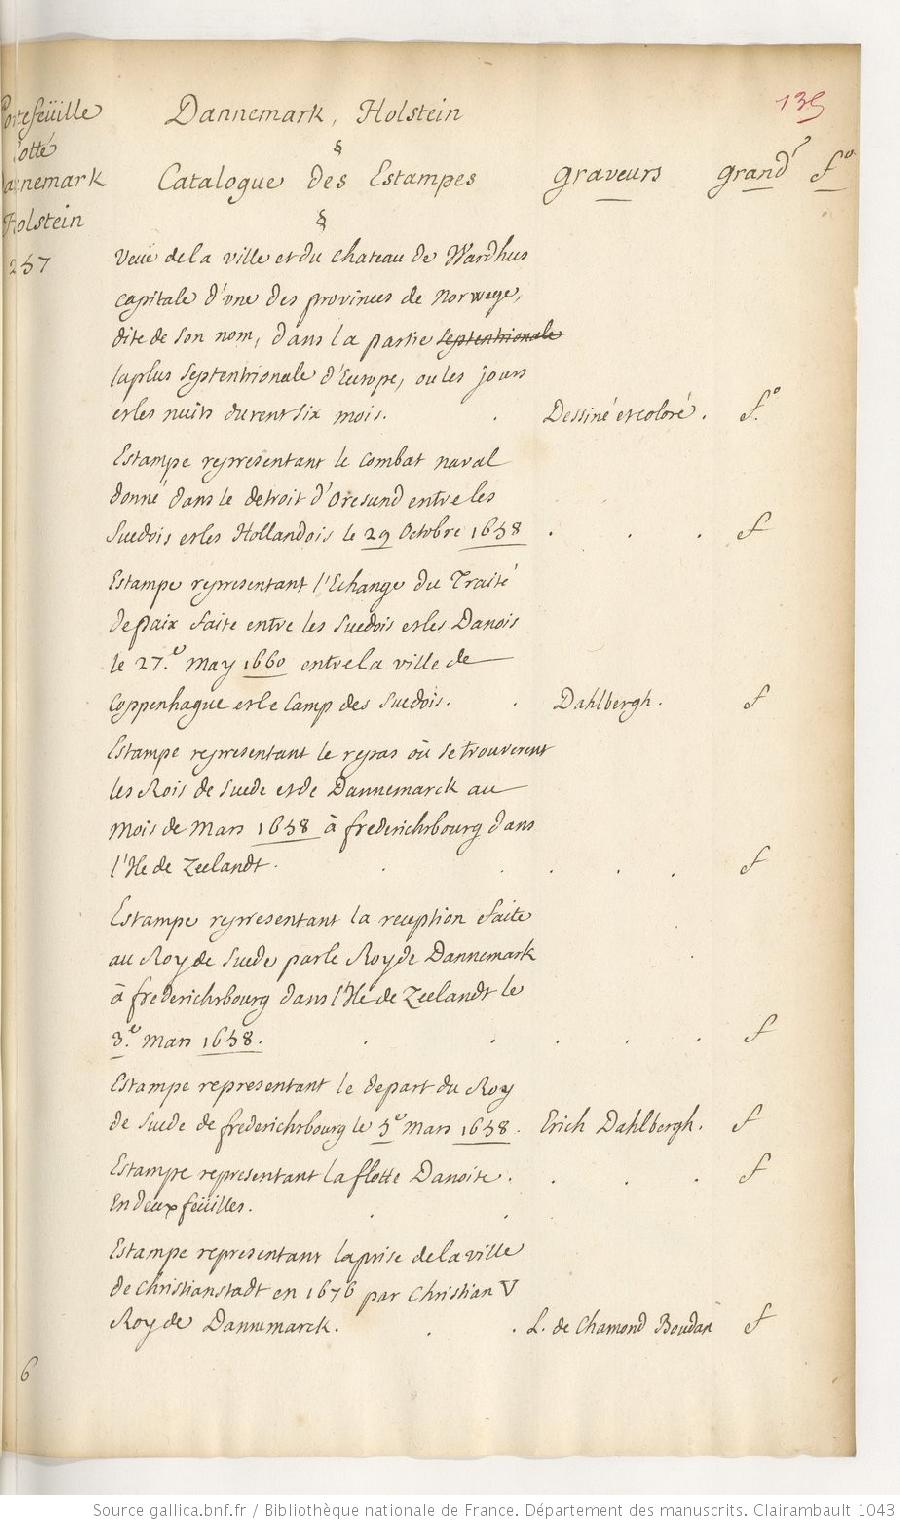 135
Portefeüille
Cotté
Dannemark
Holstein
257
Dannemark, Holstein
§
Catalogue des Estampes graveurs grandr fo
§
Veüe de la ville et du chateau de Wardhus
capitale d'une des provinces de Norwege,
dite de son nom, dans la partie septentrionale
la plus septentrionale d'Europe, ou les jours
et les nuits durent six mois. . Dessiné et coloré . f.o
Estampe representant le combat naval
donné dans le detroit d'Oresund entre les
Suedois et les Hollandois le 29 Octobre 1658 . . . f
Estampe representant l'Echange du Traité
de paix faite entre les Suedois et les Danois
le 27.e may 1660 entre la ville de
Coppenhague et le Camp des Suedois. . Dahlbergh. f
Estampe representant le repas où se trouverent
les Rois de Suede et de Dannemarck au
mois de Mars 1658 à frederichsbourg dans
l'Ile de Zeelandt. . . . . . f
Estampe representant la reception faite
au Roy de Suede par le Roy de Dannemark
à frederichsbourg dans l'Ile de Zeelandt le
3.e Mars 1658. . . . . . f
Estampe representant le depart du Roy
de Suede de frederichsbourg le 5e Mars 1658. Erich Dahlbergh. f
Estampe representant la flotte Danoise. . . . f
En deux feüilles. . .
Estampe representant la prise de la ville
de Christianstadt en 1676 par Christian V
Roy de Dannemarck. . . L. de Chamond Boudan f
6
Source gallica.bnf.fr / Bibliothèque nationale de France. Département des manuscrits. Clairambault 1043